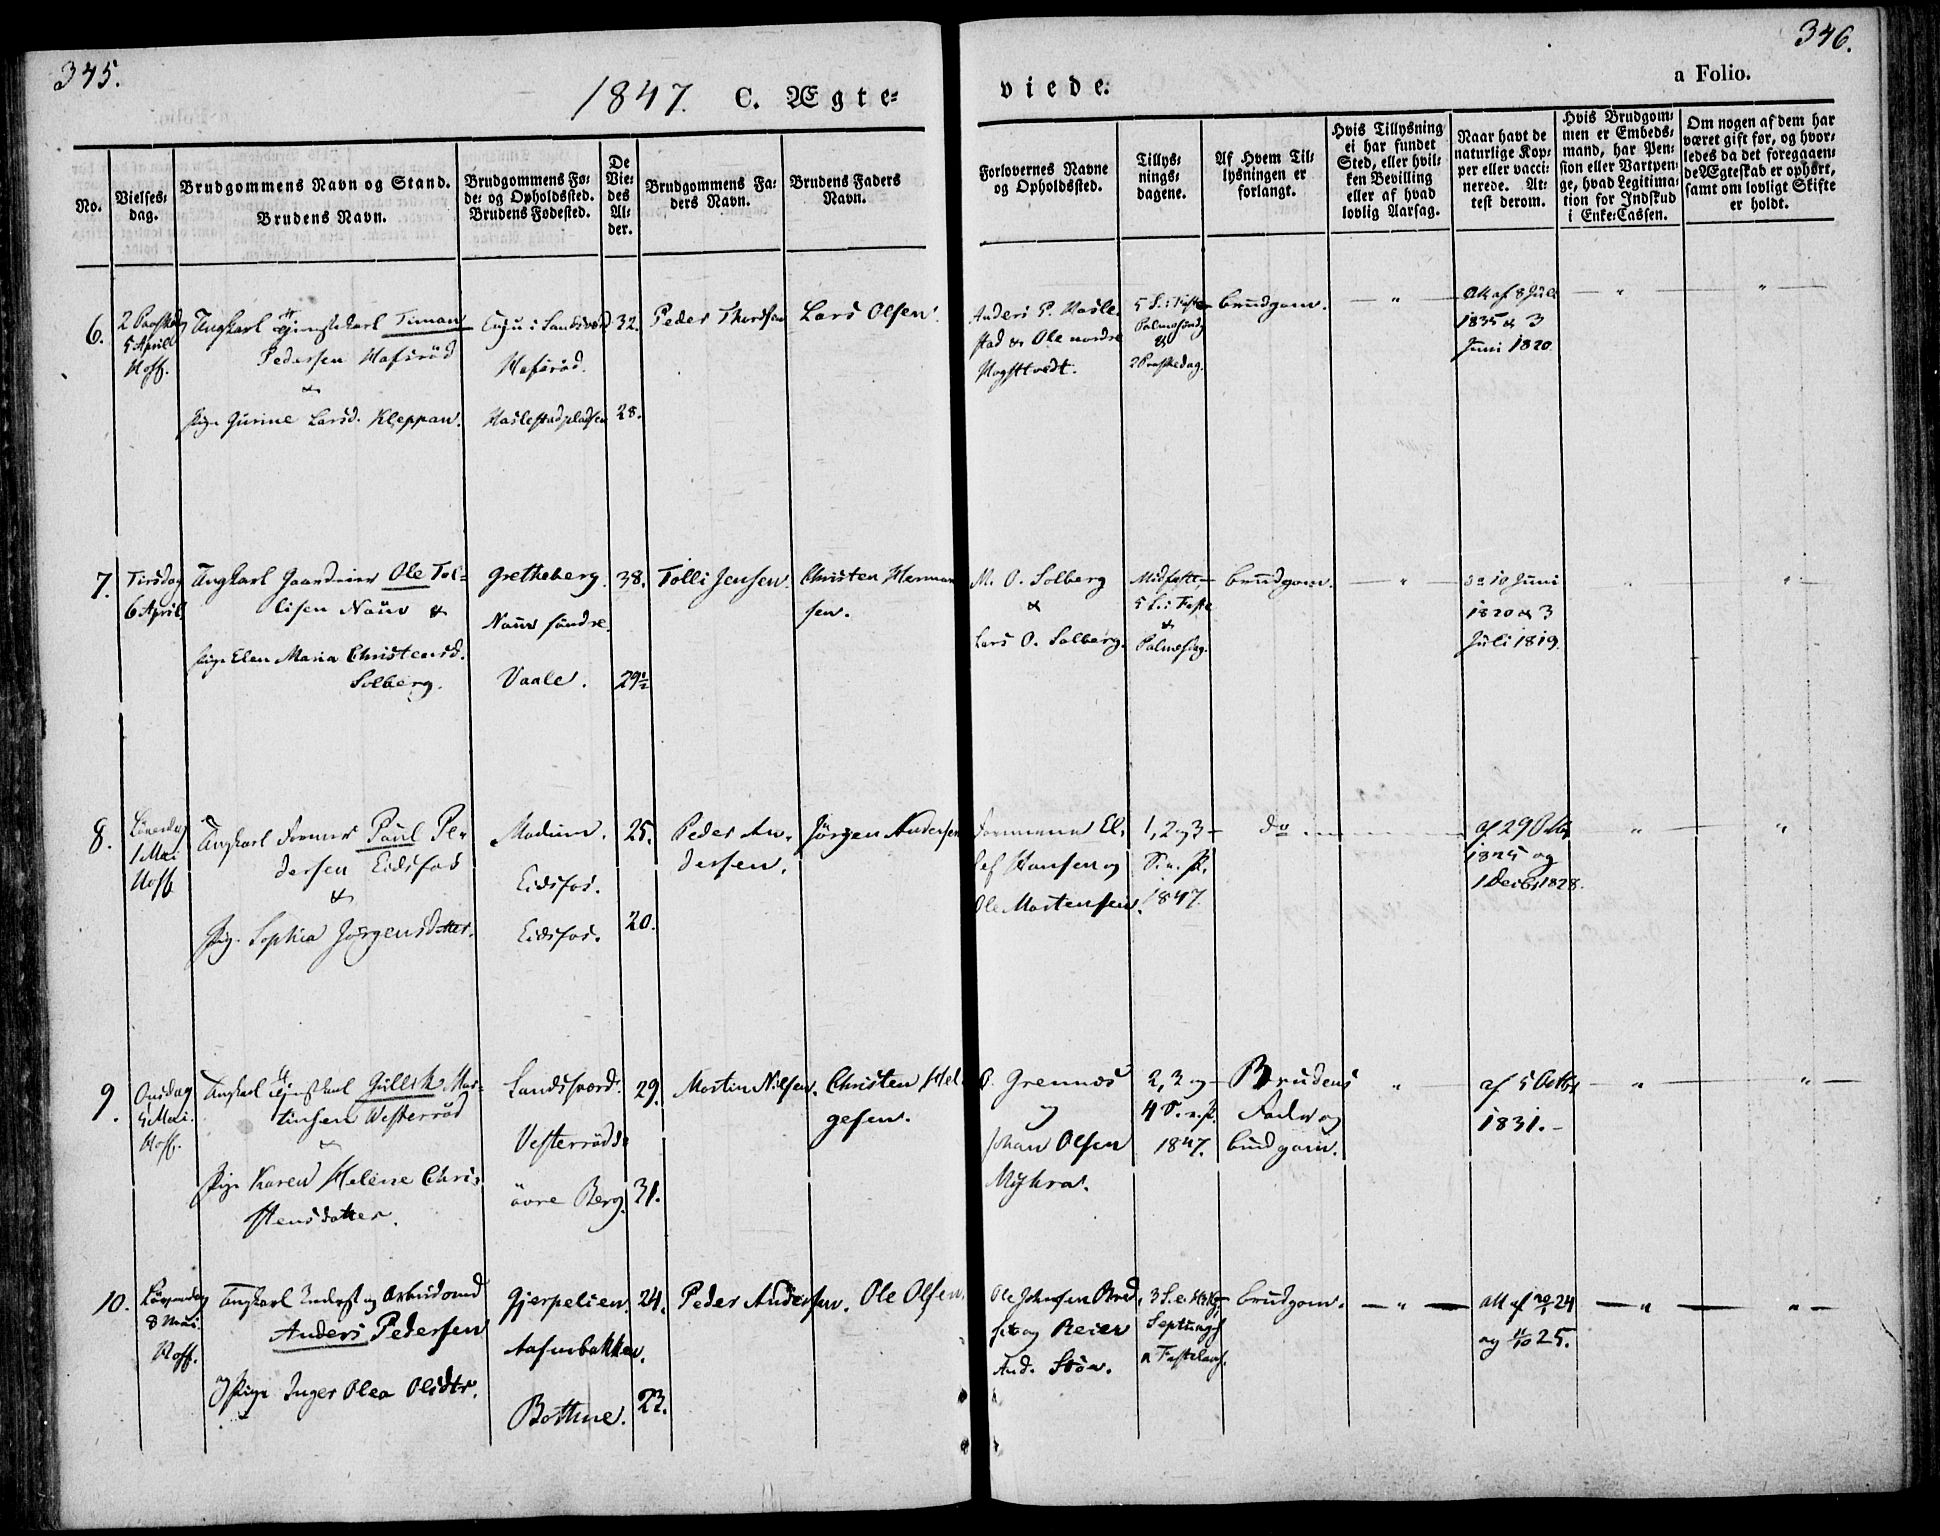 345.
1847. C. Ægte-
No.
Vielses-
dag.
Brudgommens Navn og Stand.
Brudens Navn.
Brudgommens Fø-
de- og Opholdssted.
Brudens Fødested.
De
Vie-
des
Al-
der.
Brudgommens Fa-
ders Navn.
Brudens Faders
Navn.
6.
2 Paaskedag
5 April
Hoff.
Ungkarl Tjenestekarl Timan
Pedersen Hafsröd
&
Pige Gurine Larsd. Kleppan.
i Sandsværd
Hafsröd.
Haslestadpladsen
32.
28.
Peder Thordsen
Lars Olsen.
7.
Tirsdag
6 April.
Ungkarl Gaardeier Ole Tol-
lisen Nøur &
Pige Elen Maria Christensd.
Solberg.
Gretheberg.
søndre.
Vaale.
38.
29½
Tolli Jensen.
Christen Herman
sen.
8.
Løverdag
1 Mai
Hoff
Ungkarl Former Paul Pe-
dersen Eidsfos
&
Pige Sophia Jørgensdatter.
Modum.
Eidsfos.
Eidsfos.
25.
20.
Peder An-
dersen.
Jørgen Andersen
9.
Onsdag
5 Mai.
Hoff.
Ungkarl Tjenestekarl Gullik Mar-
tinsen Vesterröd
&
Pige Karen Helene Chri-
stensdatter.
Sandsværd.
Vesterröd
övre Berg.
29.
31.
Martin Nilsen.
Christen Hel-
gesen.
10.
Løverdag
8 Mai.
Hoff.
Ungkarl Inderst og Arbeidsmd
Anders Pedersen
og Pige Inger Olea Olsdtr.
Gjerpelien.
Bothne.
24.
23.
Peder Andersen.
Ole Olsen.
346.
a Folio.
viede.
Forlovernes Navne
og Opholdssted.
Tillys-
nings-
dagene.
Af Hvem Til-
lysningen er
forlangt.
Hvis Tillysning
ei har fundet
Sted, eller hvil-
ken Bevilling
eller af hvad
lovlig Aarsag.
Naar havt de
naturlige Kop-
per eller vacci-
nerede. At-
test derom.
Hvis Brudgom-
men er Embeds-
mand, har Pen-
sion eller Vartpen-
ge, hvad Legitima-
tion for Indskud
i Enke-Cassen.
Om nogen af dem har
været gift før, og hvor-
ledes da det foregaaen-
de Ægteskab er ophørt,
samt om lovligt Skifte
er holdt.
Anders P. Hasle-
stad & Ole nordre
Hogstvedt.
5 S. i Faste
Palmesønd.
&
2 Paaskedag.
brudgom.
Att. af 8 Juli
1835 & 3
Juni 1820
M. O. Solberg
&
Lars O. Solberg.
Midfaste,
5 S. i Faste
&
Palmesdag.
brudgom.
Do 10 Juni
1820 & 3
Juli 1819
Formænd El-
lef Hansen og
Ole Mortensen.
1, 2 og 3
S. e. P.
1847.
Do
af 29 Oktbr
1825 og
1 Decbr 1828.
P. Grennes
og
Johan Olsen
Myhra.
2, 3 og
4 S. e. P.
1847.
Brudens
Fader og
brudgom.
af 5 Octbr
1831.
og Reier
And. Stön.
3 S. e. H3K
Septuag
& Fastelavn.
brudgom.
Att af 24
og 11/10 25.